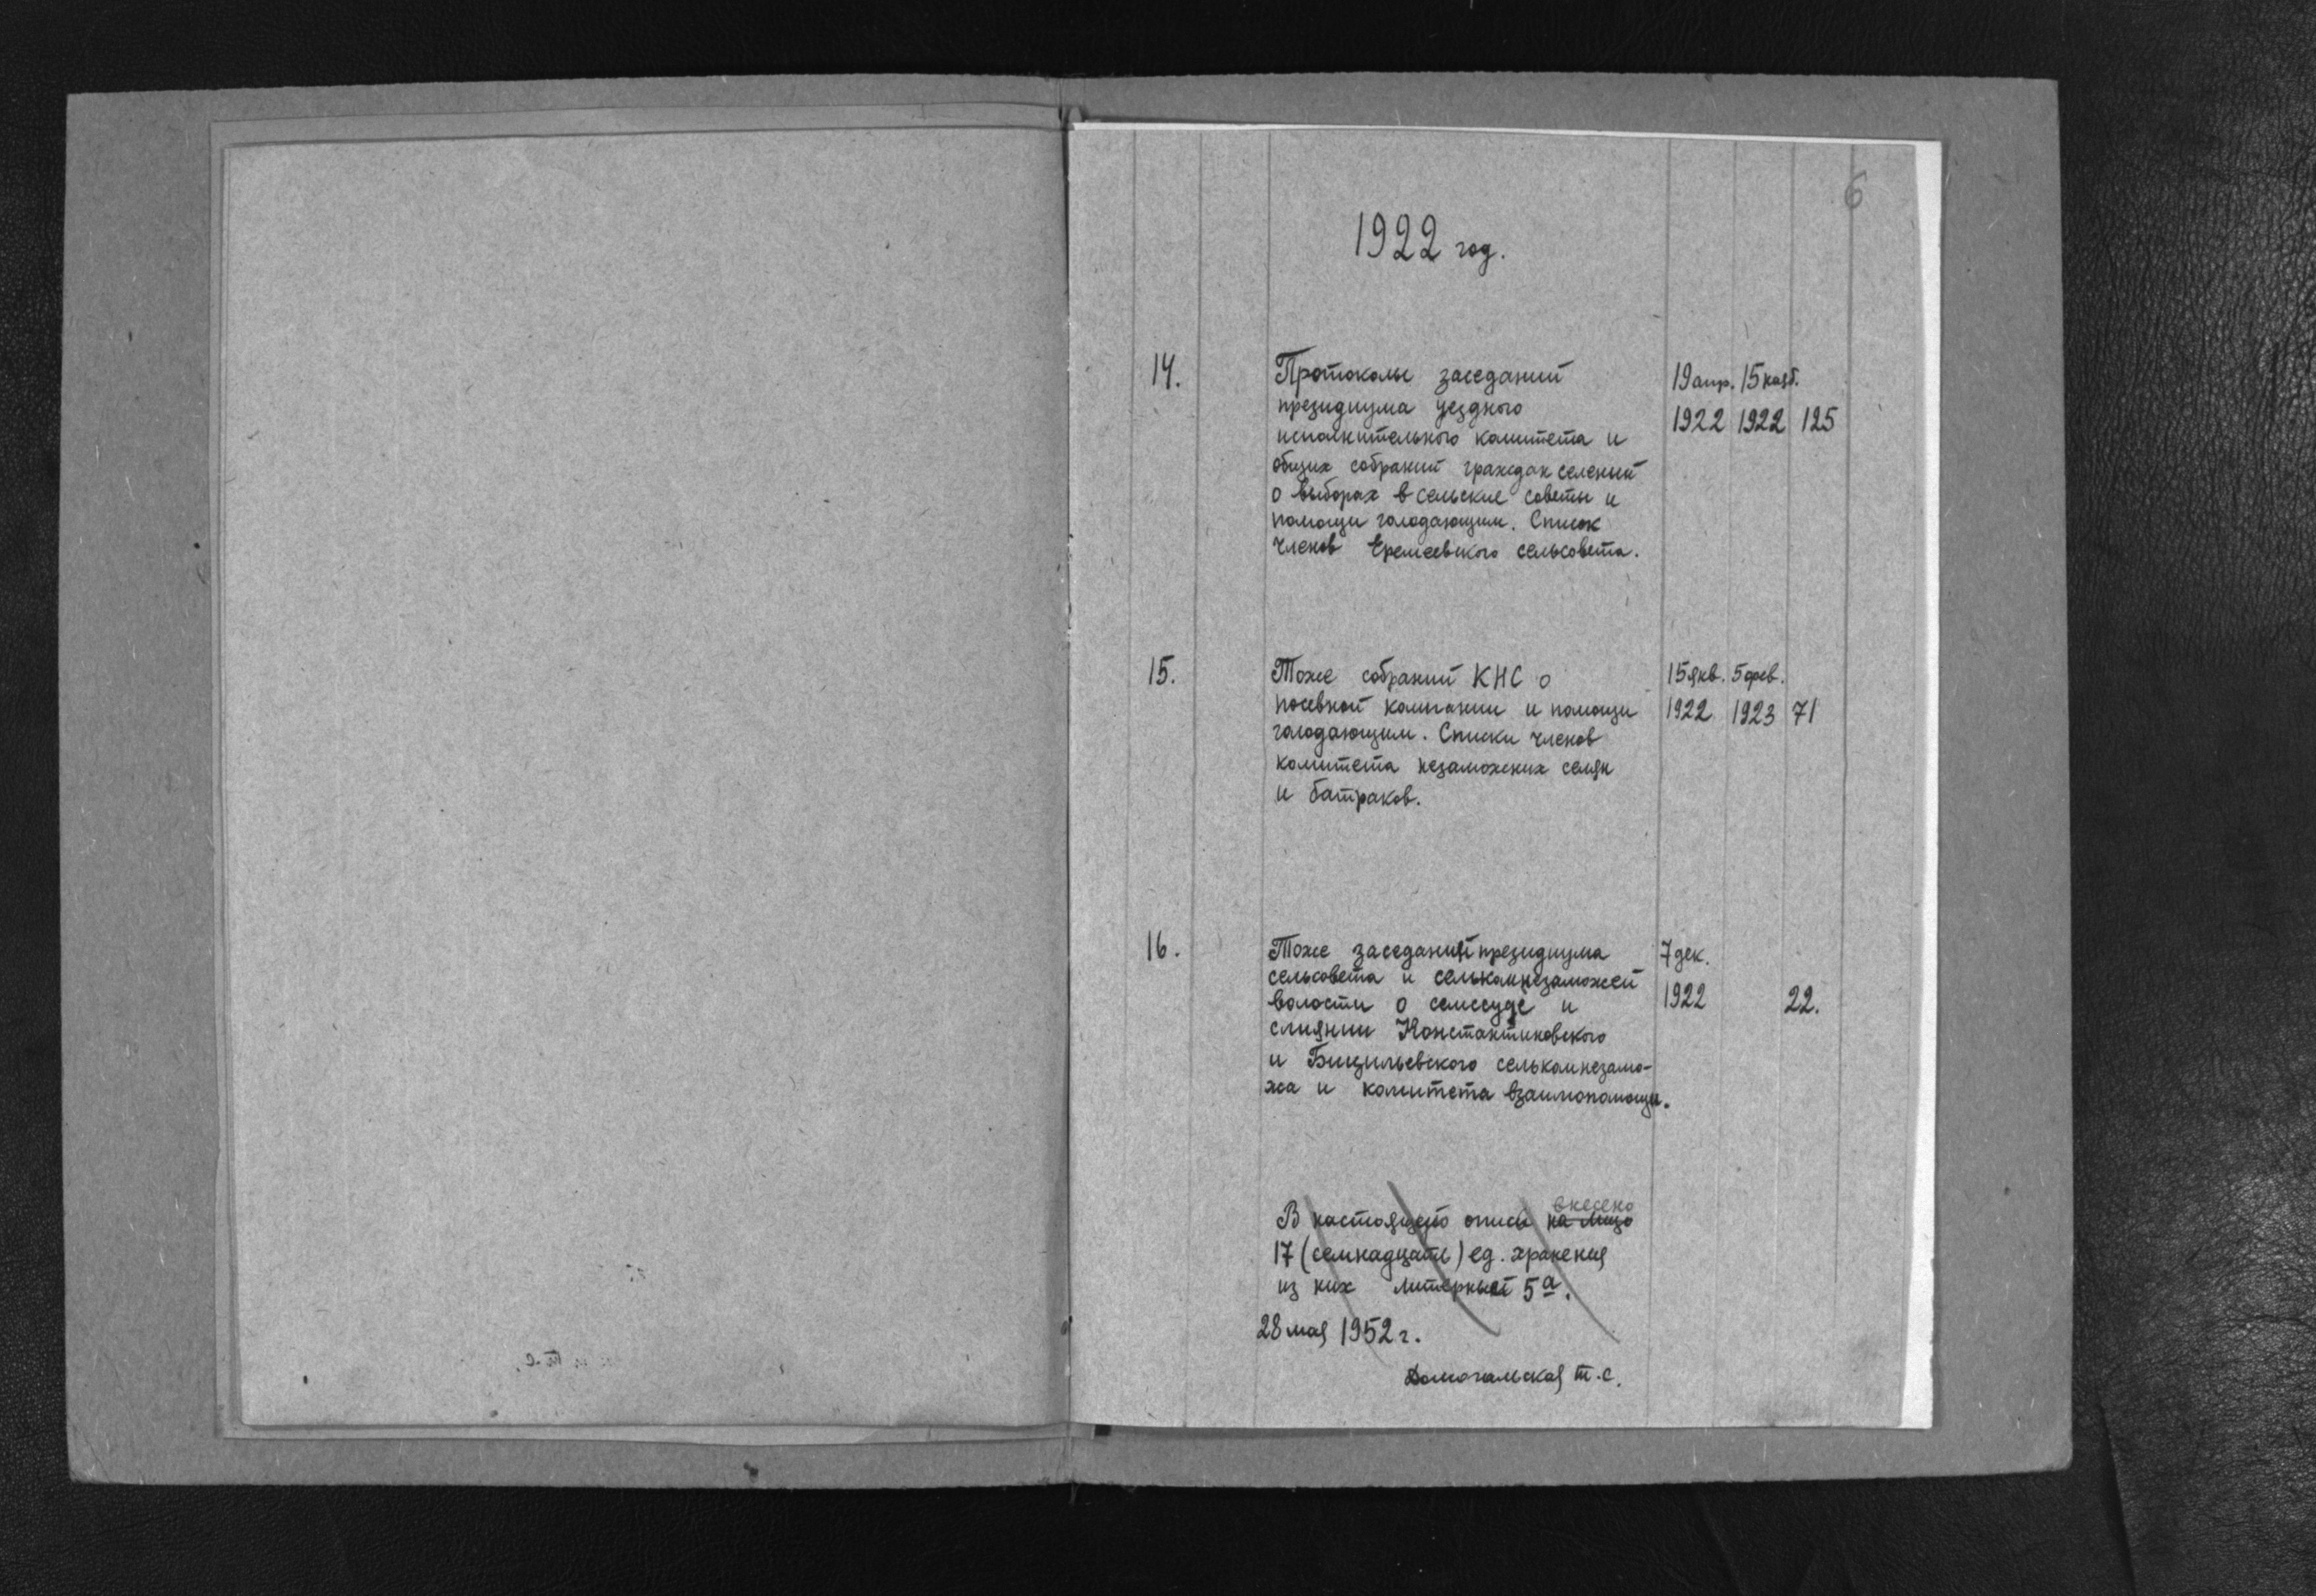 6
1922 год.
14. Протоколы заседаний 19 апр. 15 нояб.
президиума уездного 1922 1922 125
исполнительного комитета и
общих собраний граждан селений
о выборах в сельские советы и
помощи голодающим. Список
членов Еремеевского сельсовета.
15. Тоже собраний КНС о 15 янв. 5 фев.
посевной компании и помощи 1922 1923 71
голодающим. Списки членов
комитета незаможних селян
и батраков.
16. Тоже заседаний президиума 7 дек.
сельсовета иселькомнезаможей 1922 22.
волости о семссуде и
слиянии Константиновского
и Бицильевского селькомнезамо-
жа и комитета взаимопомощи.
внесено
В настоящей описи на лицо
17 (семнадцать) ед. хранения
из них литерный 5а.
28 мая 1952 г.
т.с.